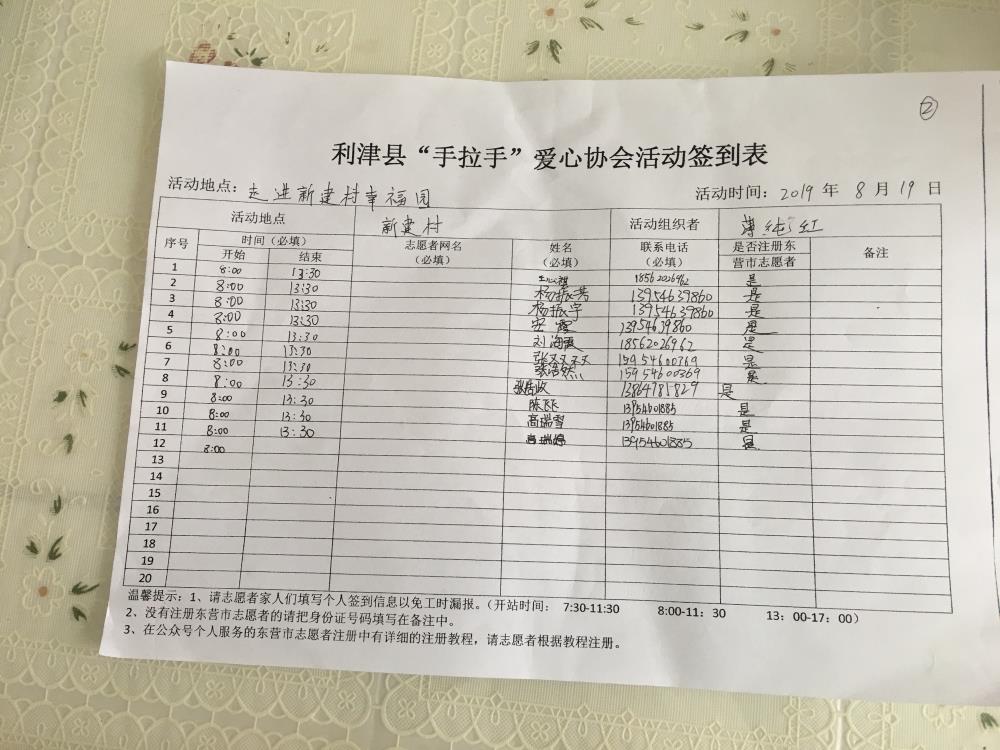 ②
利津县“手拉手”爱心协会活动签到表
活动地点：走进新建村幸福园 活动时间：2019 年 8 月 19 日
活动地点 新建村 活动组织者 薄纯红
序号 时间（必填） 志愿者网名（必填） 姓名（必填） 联系电话（必填） 是否注册东营市志愿者 备注
开始 结束
1 8:00 13:30 18562026962 是
2 8:00 13:30 杨振芳 13954639860 是
3 8:00 13:30 杨振宇 13954639860 是
4 8:00 13:30 安霞 13954639860 是
5 8:00 13:30 刘海霞 18562026962 是
6 8:00 13:30 张双双 15954600369 是
7 8:00 13:30 张浩然 15954600369 是
8 8:00 13:30 13864785829 是
9 8:00 13:30 陈飞飞 13954601885 是
10 8:00 13:30 高瑞雪 13954601885 是
11 8:00 13:30 高瑞婷 13954601885 是
12 8:00
13
14
15
16
17
18
19
20
温馨提示：1、请志愿者家人们填写个人签到信息以免工时漏报。（开站时间： 7:30-11:30 8:00-11：30 13：00-17：00）
2、没有注册东营市志愿者的请把身份证号码填写在备注中。
3、在公众号个人服务的东营市志愿者注册中有详细的注册教程，请志愿者根据教程注册。